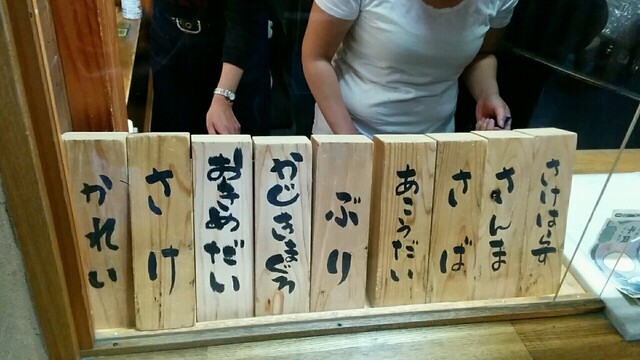 さけはらす
さんま
さば
あこうだい
ぶり
かじきまぐろ
おきめだい
さけ
かれい